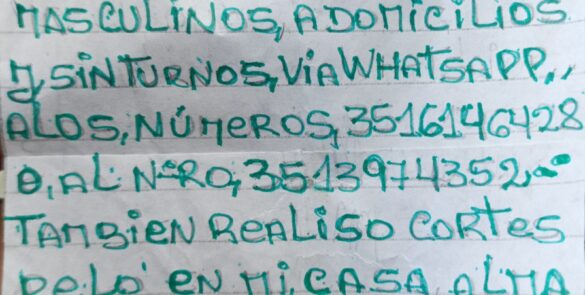 MASCULINOS, A DOMICILIOS
Y, SIN TURNOS, VIA WHATSAPP,,
A LOS, NÚMEROS, 3516146428
O, AL NºRO, 3513974352,-
TAMBIEN REALISO CORTES
DE LO' EN MI, CASA, ALMA